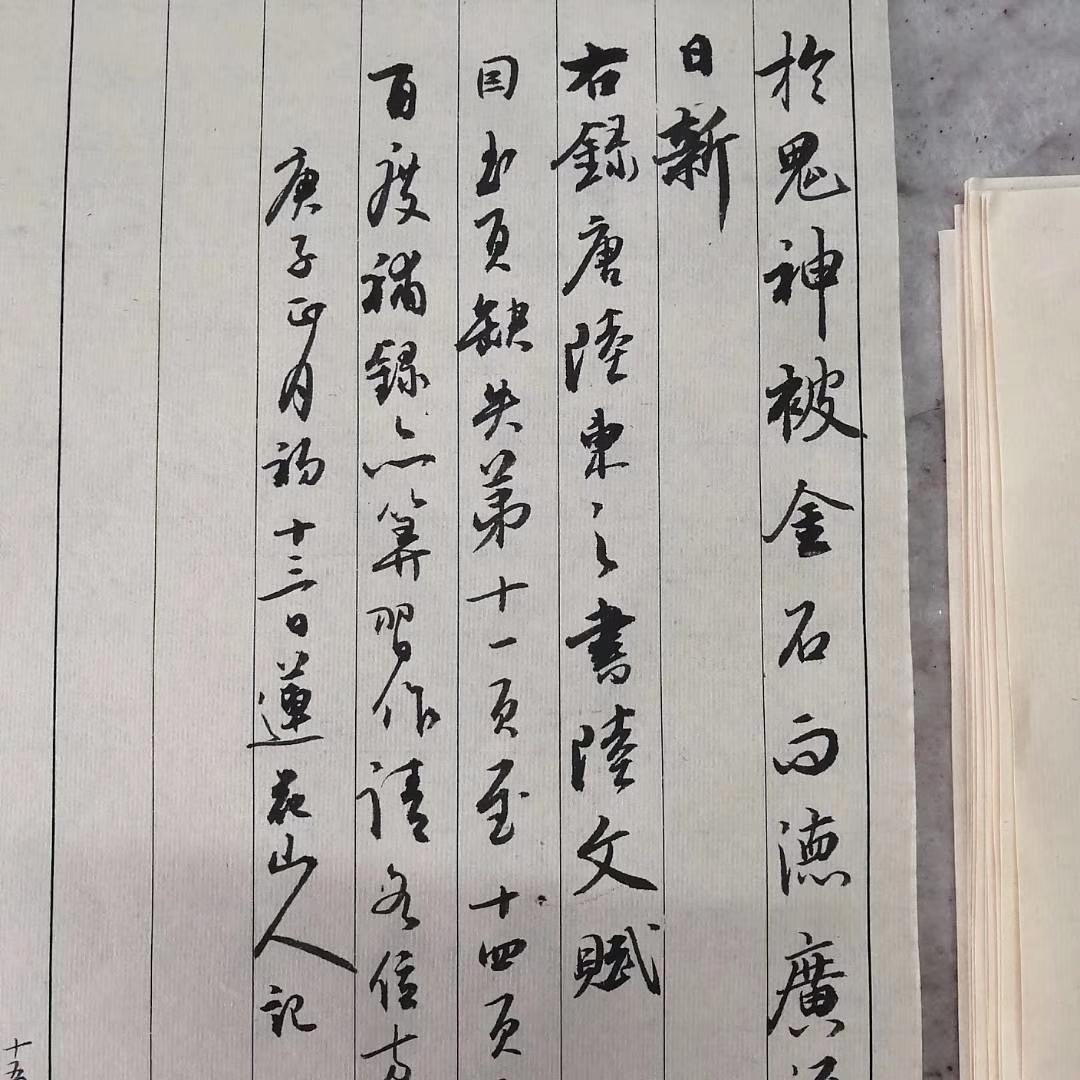 於鬼神被金石而德廣
日新
右録唐陸柬之書陸文賦
因書頁缺失第十一頁至十四頁
百度補録亦算習作請各位方
庚子正月初十三日蓮花山人記
十五